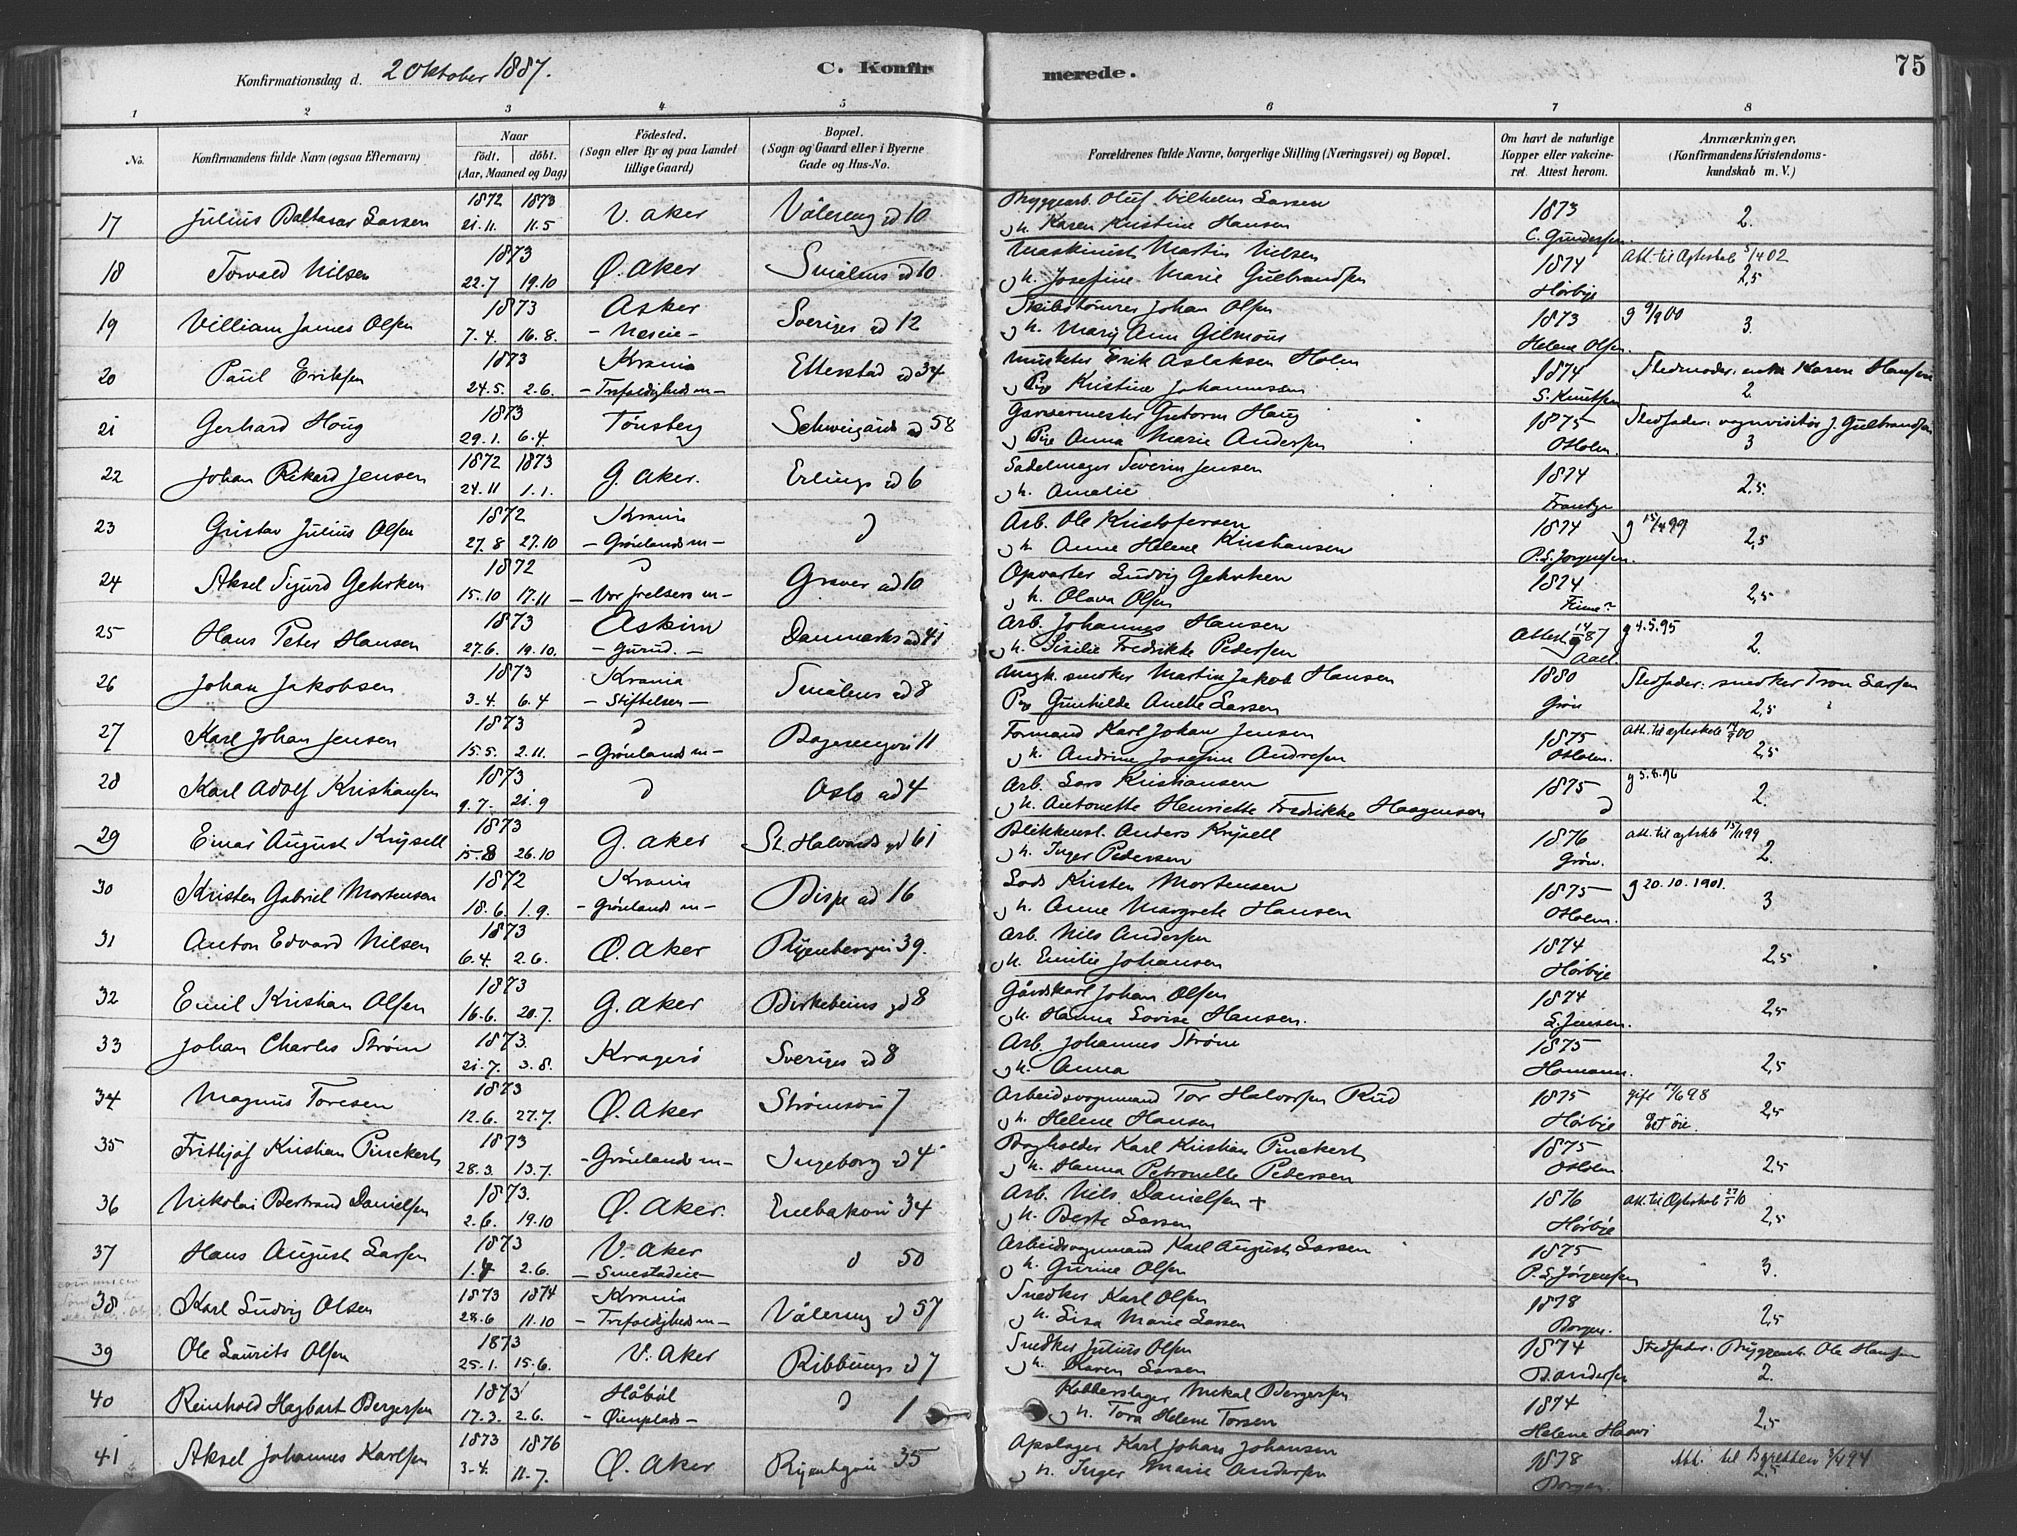 Konfirmationsdag d. 2 Oktober 1887.
C. Konfirmerede.
75
1 2 3 4 5 6 7 8
No.
Konfirmandens fulde Navn (ogsaa Efternavn)
Naar
födt. döbt.
(Aar, Maaned og Dag)
Födested.
(Sogn eller By og paa Landet
tillige Gaard)
Bopæl.
(Sogn og Gaard eller i Byerne
Gade og Hus-No.
Forældrenes fulde Navne, borgerlige Stilling (Næringsvei) og Bopæl.
Om havt de naturlige
Kopper eller vakcine-
ret. Attest herom.
Anmærkninger,
(Konfirmandens Kristendoms-
kundskab m. V.)
17 Julius Baltasar Larsen 1872 1873 21.11. 11.5 V. Aker Vålereng gd 10
Bryggearb. Oluf Vilhelm Larsen
og h. Karen Kristine Hansen
1873 C. Gundersen. 2.
18 Torvald Nilsen 1873 22.7 19.10 Ø. Aker Smålens gd 10.
Maskinist Martin Nilsen
og h. Josefine Marie Gulbrandsen
1874 Hørbye Att. til Ægteskab 5/4 02 2,5
19 William James Olsen 1873 7.4. 16.8. Asker Sveriges gd 12
Skibstømrer Johan Olsen
og h. Mary Ann Gilmour
1873 Helene Olsen. 3.
20 Paul Eriksen 1873 24.5. 2.6. Krania - Trefoldigheds m - Etterstad gd 34
Musketer Erik Aslaksen Holm
og Pige Kristine Johannesen
1874 S. Knutsen Stedmoder: enke Karen Hansen 2.
21 Gerhard Houg 1873 29.1. 6.4. Tönsberg Schweigårds gd 58
Garvermester Gutorm Haug
og Pige Anna Marie Andersen
1875 OHolm. Stedfader: vognvisitör J. Gulbrandsen 3
22 Johan Rikard Jensen 1872 1873 24.11 1.1. G. Aker. Erlings gd 6
Sadelmager Severin Jensen
og h. Amalie
1874 2,5.
23 Gustav Julius Olsen 1872 27.8 27.10 Krania - Grönlands m - d
Arb. Ole Kristofersen
og h. Anne Helene Kristiansen
1874 P. S. Jørgensen. g 15/4 99 2,5
24 Aksel Sigurd Gehrken 1872 15.10 17.11 d - Vor frelsers m - Grøver gd 10
Opvarter Ludvig Gehrken
og h. Olava Olsen
1874 2,5
25 Hans Peter Hansen 1873 27.6. 19.10. Askim - Gurud. - Danmarks gd 41
Arb. Johannes Hansen
og h. Lisilie Fredrikke Pedersen
Attest 14/9 87 Aall g 4.5.95 2.
26 Johan Jakobsen 1873 3.4. 6.4 Krania - Stiftelsen - Smålens gd 8
Ungk. snedker Martin Jakob Hansen
Pige Gunhilde Anette Larsen
1880 Grøn Stedfader: snedker Tron Larsen 2,5
27 Karl Johan Jensen 1873 15.5. 2.11. d - Grönlands m -
Formand Karl Johan Jensen
og h. Andrine Josefine Andresen
1875 OHolm. Att. til ægteskab 2,5
28 Karl Adolf Kristiansen 1873 9.7. 21.9 d Oslo gd 4
Arb. Lars Kristiansen
og h. Antonette Henriette Fredrikke Haagensen
1875 d g 5.8.96 2.
29 Einar August Krysell 1873 15.8 26.10 G. Aker St. Halvards gd 61
Blikkensl. Anders Krysell
og h. Inger Pedersen
1876 Grøn. Att. til ægtesk. 15/11 99 2.
30 Kristen Gabriel Mortensen 1872 18.6. 1.9. Krania - Grønlands m - Bispe gd 16
Lods Kristen Mortensen
og h. Anne Margrete Hansen
1875 OHolm. g 20.10.1901. 3
31 Anton Edvard Nilsen 1873 6.4. 2.6. Ø. Aker Ryenbergvei 39.
Arb. Nils Andersen
og h. Emilie Johansen
1874 Hørbye 2,5
32 Emil Kristian Olsen 1873 16.6. 20.7. G. Aker Birkebeins gd 8
Gårdskarl Johan Olsen
og h. Hanna Lovise Hansen.
1874 S. Jensen. 2,5
33 Johan Charles Strøm 1873 21.7. 3.8. Kragerö Sveriges gd 8
Arb. Johannes Strøm
og h. Anna
1875 Homann. 2,5
34 Magnus Toresen 1873 12.6. 27.7. Ø. Aker Strømsvei 7
Arbeidsvognmand Tor Halvorsen Rud
og h. Helene Hansen
1875 Hørbye 2,5
35 Fritjof Kristian Pinckert 1873 28.3. 13.7. - Grönlands m - Ingeborg gd 4
Bogholder Karl Kristian Pinckert
og h. Hanna Petronelle Pedersen
1875 OHolm. 2,5
36 Nikolai Bertrand Danielsen 1873. 2.6. 19.10 Ø. Aker. Enebakvei 34
Arb. Nils Danielsen +
og h. Berte Larsen
1876 Hørbye Att. til Ægteskab 27/1 10 2,5
37 Hans August Larsen 1873 1.4 2.6. V. Aker - Smestadeie - d 50
Arbeidsvognmand Karl August Larsen
og h. Gurine Olsen
1875 P. S. Jörgensen 3.
38 Karl Ludvig Olsen 1873 1874 28.6 11.10 Krania - Trefoldigheds m - Vålereng gd 57
Snedker Karl Olsen
og h. Lisa Marie Larsen
1878 Borgen. 2,5
39 Ole Laurits Olsen 1873 25.1. 15.6. V. Aker Ribbungs gd 7
Snedker Julius Olsen
og h. Karen Larsen
1874 B. Andersen Stedfader: Bryggearb. Ole Hansen 2.
40 Reinhold Hagbart Bergersen 1873 17.3. 2.6. Håböl - Øienplads - d 1
Kobberslager Mikal Bergersen
og h. Tora Helene Torsen
1874 Helene Haavi 2,5
41 Aksel Johannes Karlsen 1873 1876 3.4. 11.7. Ø. Aker Ryenbgvei 35
Opslager Karl Johan Johansen
og h. Inger Marie Andersen
1878 Borgen. Att. til Byretten 3/4 94 2,5